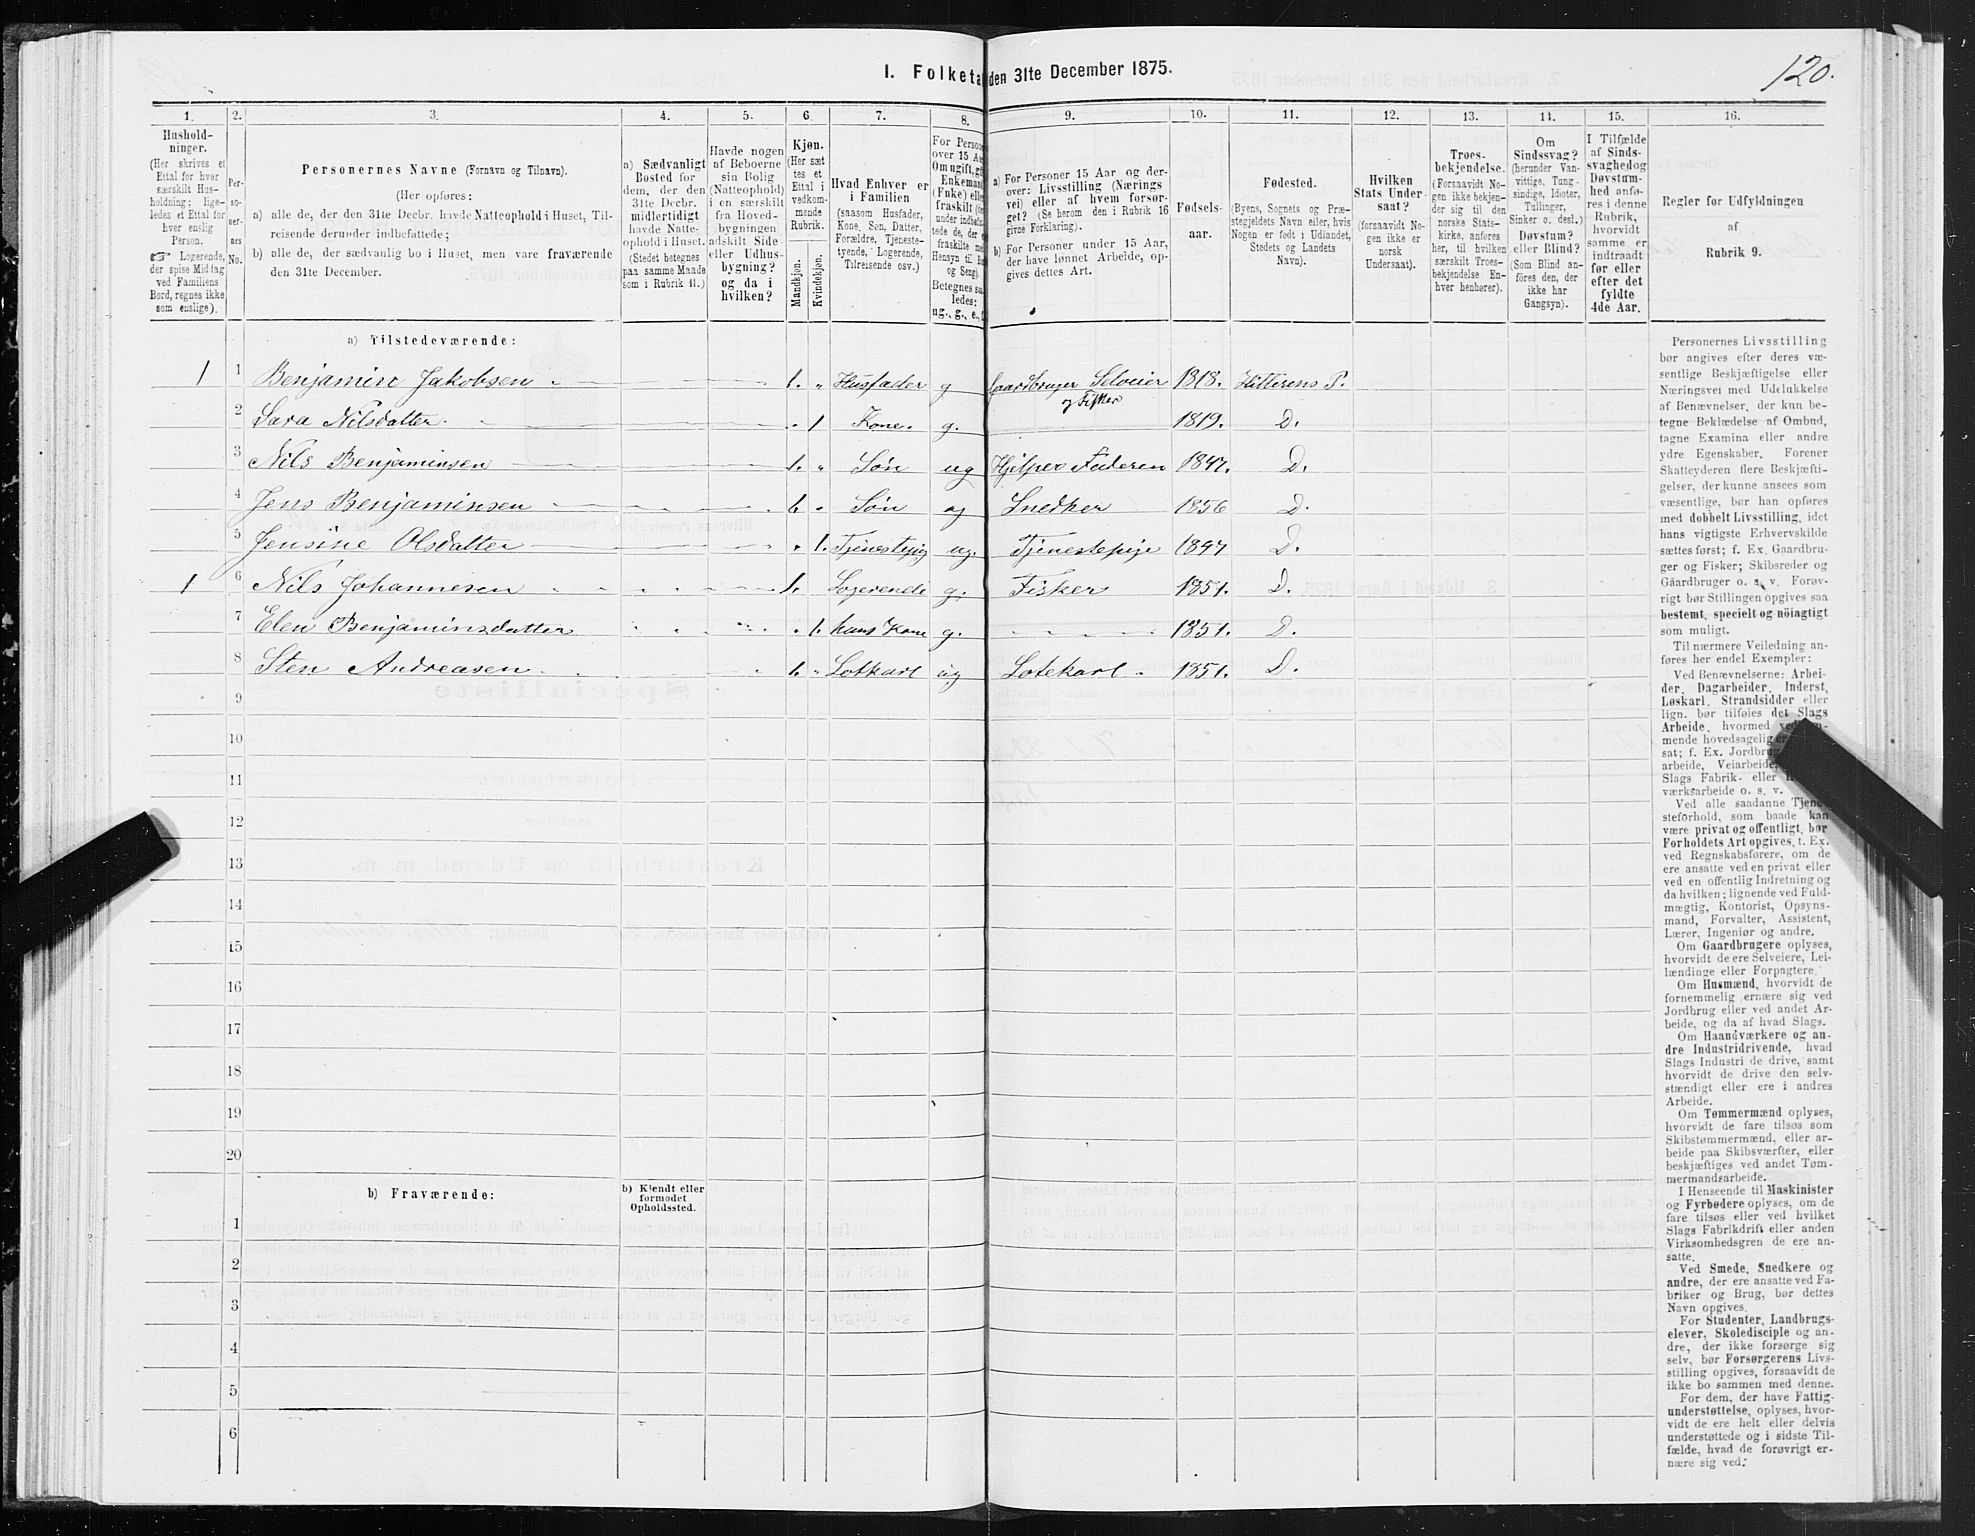 120.
I. Folketal den 31te December 1875.
1. 2. 3. 4. 5. 6. 7. 8. 9. 10. 11. 12. 13. 14. 15. 16.
Hushold-
ninger.
(Her skrives et
Ettal for hver
særskilt Hus-
holdning; lige-
ledes et Ettal for
hver enslig
Person.
☞ Logerende,
der spise Middag
ved Familiens
Bord, regnes ikke
som enslige).
Per-
so-
ner-
nes
No.
Personernes Navne (Fornavn og Tilnavn).
(Her opføres:
a) alle de, der den 31te Decbr. havde Natteophold i Huset, Til-
reisende derunder indbefattede;
b) alle de, der sædvanlig bo i Huset, men vare fraværende
den 31te December.
a) Sædvanligt
Bosted for
dem, der den
31te Decbr.
midlertidigt
havde Natte-
ophold i Huset.
(Stedet betegnes
paa samme Maade
som i Rubrik 11.)
Havde nogen
af Beboerne
sin Bolig
(Natteophold)
i en særskilt
fra Hoved-
bygningen
adskilt Side-
eller Udhus-
bygning?
og da i
hvilken?
Kjøn.
(Her sæt
tes et
Ettal i
vedkom-
mende
Rubrik.
Mandkjøn.
Kvindekjøn.
Hvad Enhver er
i Familien
(saasom Husfader,
Kone, Søn, Datter,
Forældre, Tjeneste-
tyende, Logerende,
Tilreisende osv.)
For Persone
over 15 Aa
Om ugift, gif
Enkemand
(Enke) elle
fraskilt (de
under indbefat-
tede de, der e
fraskilte me
Hensyn til B
og Seng).
Betegnes saa
ledes:
ug., g., e.,
a) For Personer 15 Aar og der-
over: Livsstilling (Nærings
vei) eller af hvem forsør-
get? (Se herom den i Rubrik 16
givne Forklaring).
b) For Personer under 15 Aar,
der have lønnet Arbeide, op-
gives dettes Art.
Fødsels-
aar.
Fødested.
(Byens, Sognets og Præ-
stegjeldets Navn eller, hvis
Nogen er født i Udlandet,
Stedets og Landets
Navn).
Hvilken
Stats Under-
saat?
(forsaavidt No-
gen ikke er
norsk
Undersaat).
Troes-
bekjendelse.
(Forsaavidt No-
gen ikke bekjen-
der sig til den
norske Stats-
kirke, anføres
her, til hvilken
særskilt Troes-
bekjendelse En-
hver henhører).
Om
Sindssvag?
(herunder Van-
vittige, Tung-
sindige, Idioter,
Tullinger,
Sinker o. desl.)
Døvstum?
eller Blind?
(Som Blind an-
føres den, der
ikke har
Gangsyn).
I Tilfælde
af Sinds-
svaghedog
Døvstum-
hed anfø-
res i denne
Rubrik,
hvorvidt
samme er
indtraadt
før eller
efter det
fyldte
4de Aar.
Regler for Udfyldningen
af
Rubrik 9.
a) Tilstedeværende:
1 1 Benjamin Jakobsen 1. " Husfader g Gaardbruger Selveier og Fisker 1818. Hitterens P.
2 Sara Nilsdatter. " 1 Kone. g. 1819. D.
3 Nils Benjaminsen 1. " Søn ug Hjelper Faderen 1847. D.
4 Jens Benjaminsen 1. " Søn ug Snedker 1856 D.
5 Jensine Olsdatter " 1. Tjenestepig ug. Tjenestepige 1847 D.
1 6 Nils Johannesen 1. Logerende g. Fisker 1851. D.
7 Elen Benjaminsdatter " 1. hans Kone g. 1851. D.
8 Sten Andreasen 1. " Lotkarl ug Lotekarl 1851. D.
9
10
11
12
13
14
15
16
17
18
19
20
b) Fraværende:
b) Kjendt eller
formodet
Opholdssted.
1
2
3
4
5
6
Personernes Livsstilling
bør angives efter deres væ-
sentlige Beskjæftigelse eller
Næringsvei med Udelukkelse
af Benævnelser, der kun be-
tegne Beklædelse af Ombud,
tagne Examina eller andre
ydre Egenskaber. Forener
Skatteyderen flere Beskjæfti-
gelser, der kunne ansees som
væsentlige, bør han opføres
med dobbelt Livsstilling, idet
hans vigtigste Erhvervskilde
sættes først; f. Ex. Gaardbru-
ger og Fisker; Skibsreder og
Gaardbruger o. s. v. Forøv-
rigt bør Stillingen opgives saa
bestemt, specielt og nöiagtigt
som muligt.
Til nærmere Veiledning an-
føres her endel Exempler:
Ved Benævnelserne: Arbei-
der, Dagarbeider, Inderst,
Løskarl, Strandsidder eller
lign. bør tilføies det Slags
Arbeide, hvormed
mende hovedsagelig er
sat; f. Ex. Jordbrug
arbeide, Veiarbeide,
Slags Fabrik- eller
værksarbeide o. s. v.
Ved alle saadanne Tjene-
steforhold, som baade kan
være privat og offentligt, bør
Forholdets Art opgives, f. Ex.
ved Regnskabsførere, om de
ere ansatte ved en privat eller
ved en offentlig Indretning og
da hvilken; lignende ved Fuld-
mægtig, Kontorist, Opsyns-
mand, Forvalter, Assistent,
Lærer, Ingeniør og andre.
Om Gaardbrugere oplyses,
hvorvidt de ere Selveiere, Lei-
lændinge eller Forpagtere.
Om Husmænd, hvorvidt de
fornemmelig ernære sig ved
Jordbrug eller ved andet Ar-
beide, og da af hvad Slags.
Om Haandværkere og an-
dre Industridrivende, hvad
Slags Industri de drive, samt
hvorvidt de drive den selv-
stændigt eller ere i andres
Arbeide.
Om Tømmermænd oplyses,
hvorvidt de fare tilsøs som
Skibstømmermænd, eller ar-
beide paa Skibsværfter, eller
beskjæftiges ved andet Tøm-
mermandsarbeide.
I Henseende til Maskinister
og Fyrbødere oplyses, om de
fare tilsøs eller ved hvilket
Slags Fabrikdrift eller anden
Virksomhedsgren de ere an-
satte.
Ved Smede, Snedkere og
andre, der ere ansatte ved Fa-
briker og Brug, bør dettes
Navn opgives.
For Studenter, Landbrugs-
elever, Skoledisciple og an-
dre, der ikke forsørge sig
selv, bør Forsørgerens Livs-
stilling opgives, forsaavidt de
ikke bo sammen med denne.
For dem, der have Fattig-
understøttelse, oplyses, hvor-
vidt de ere helt eller delvis
understøttede og i sidste Til-
fælde, hvad de forøvrigt er-
nære sig ved.